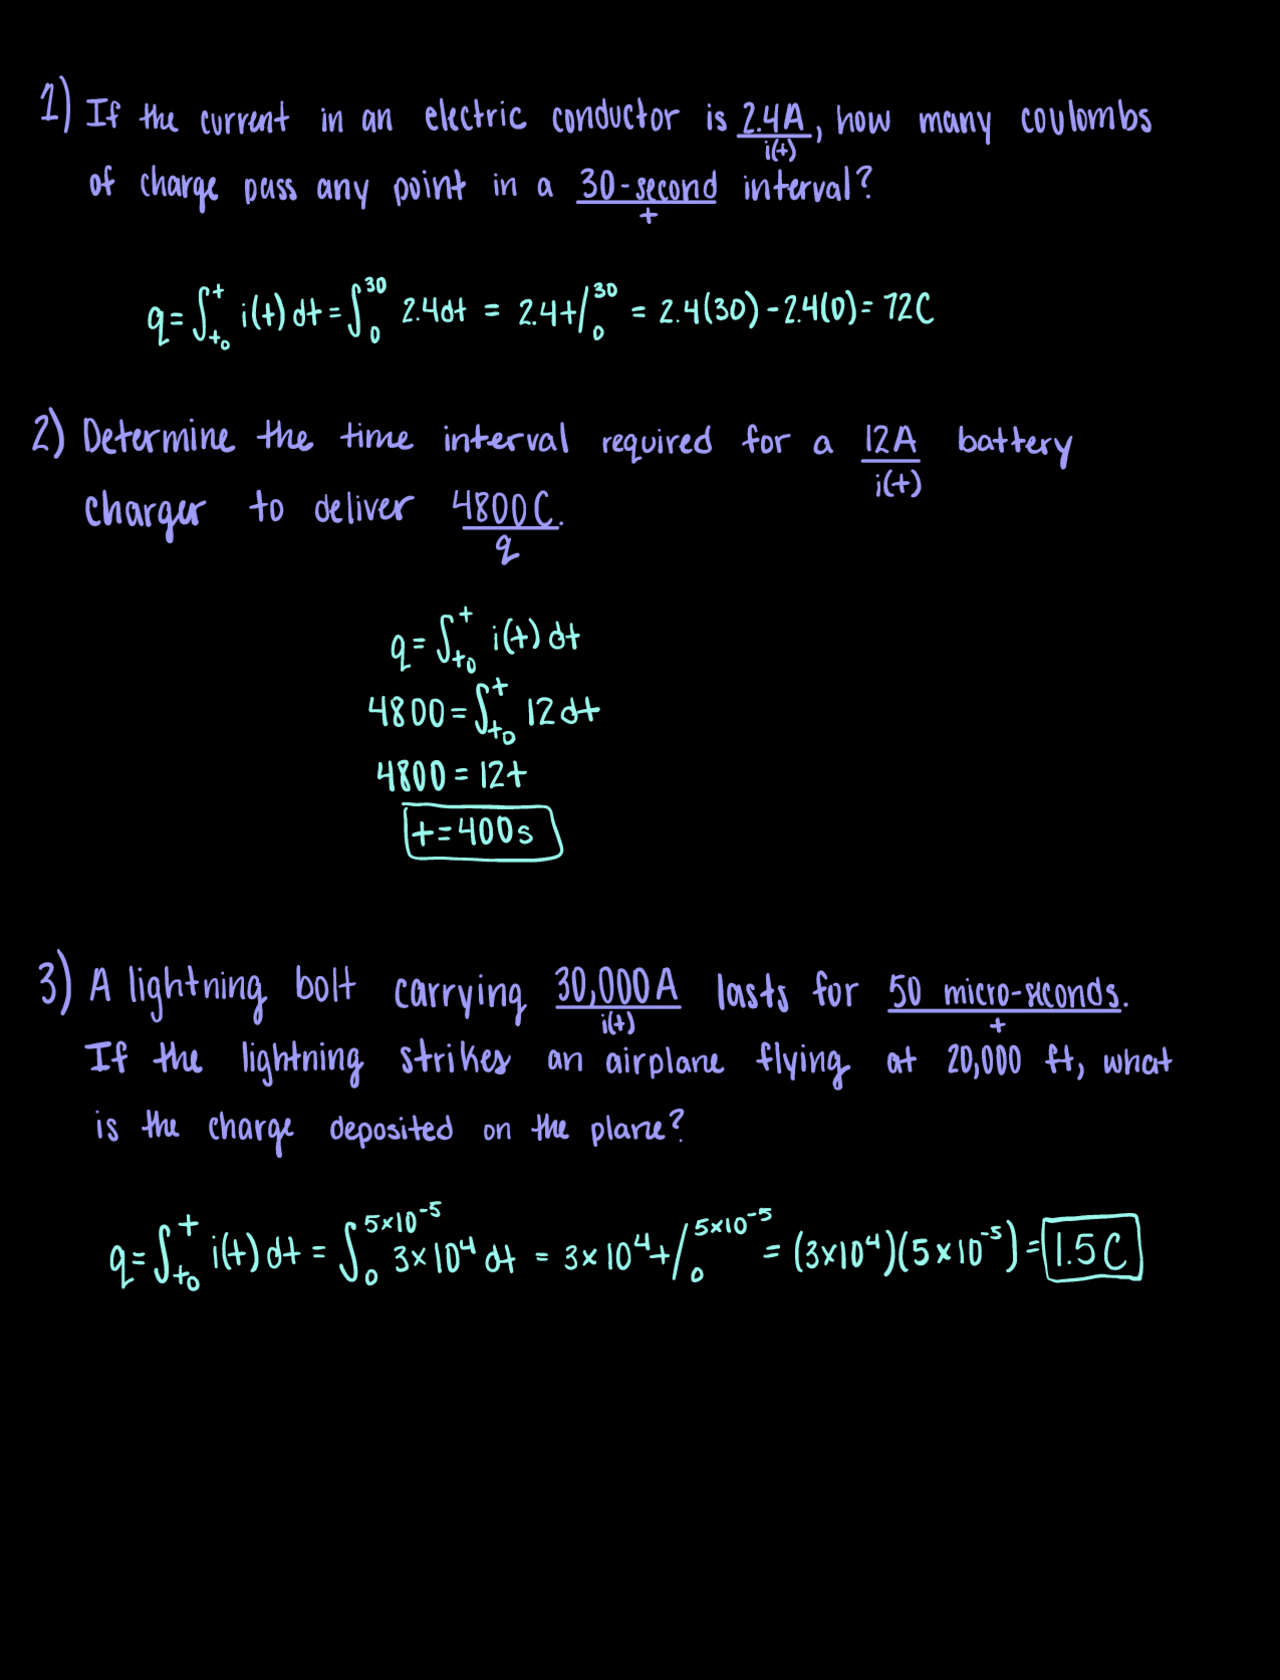 1) If the current in an electric conductor is 2.4A, how many coulombs
i(t)
of charge pass any point in a 30-second interval?
t
q=∫_{t₀}^{t} i(t) dt = ∫_{0}^{30} 2.4dt = 2.4t/_{0}^{30} = 2.4(30) - 2.4(0) = 72C
2) Determine the time interval required for a 12A battery
i(t)
charger to deliver 4800C.
q
q=∫_{t₀}^{t} i(t) dt
4800=∫_{t₀}^{t} 12dt
4800 = 12t
t=400s
3) A lightning bolt carrying 30,000A lasts for 50 micro-seconds.
i(t) t
If the lightning strikes an airplane flying at 20,000 ft, what
is the charge deposited on the plane?
q=∫_{t₀}^{t} i(t) dt = ∫_{0}^{5×10⁻⁵} 3×10⁴ dt = 3×10⁴t/_{0}^{5×10⁻⁵} = (3×10⁴)(5×10⁻⁵) = 1.5C